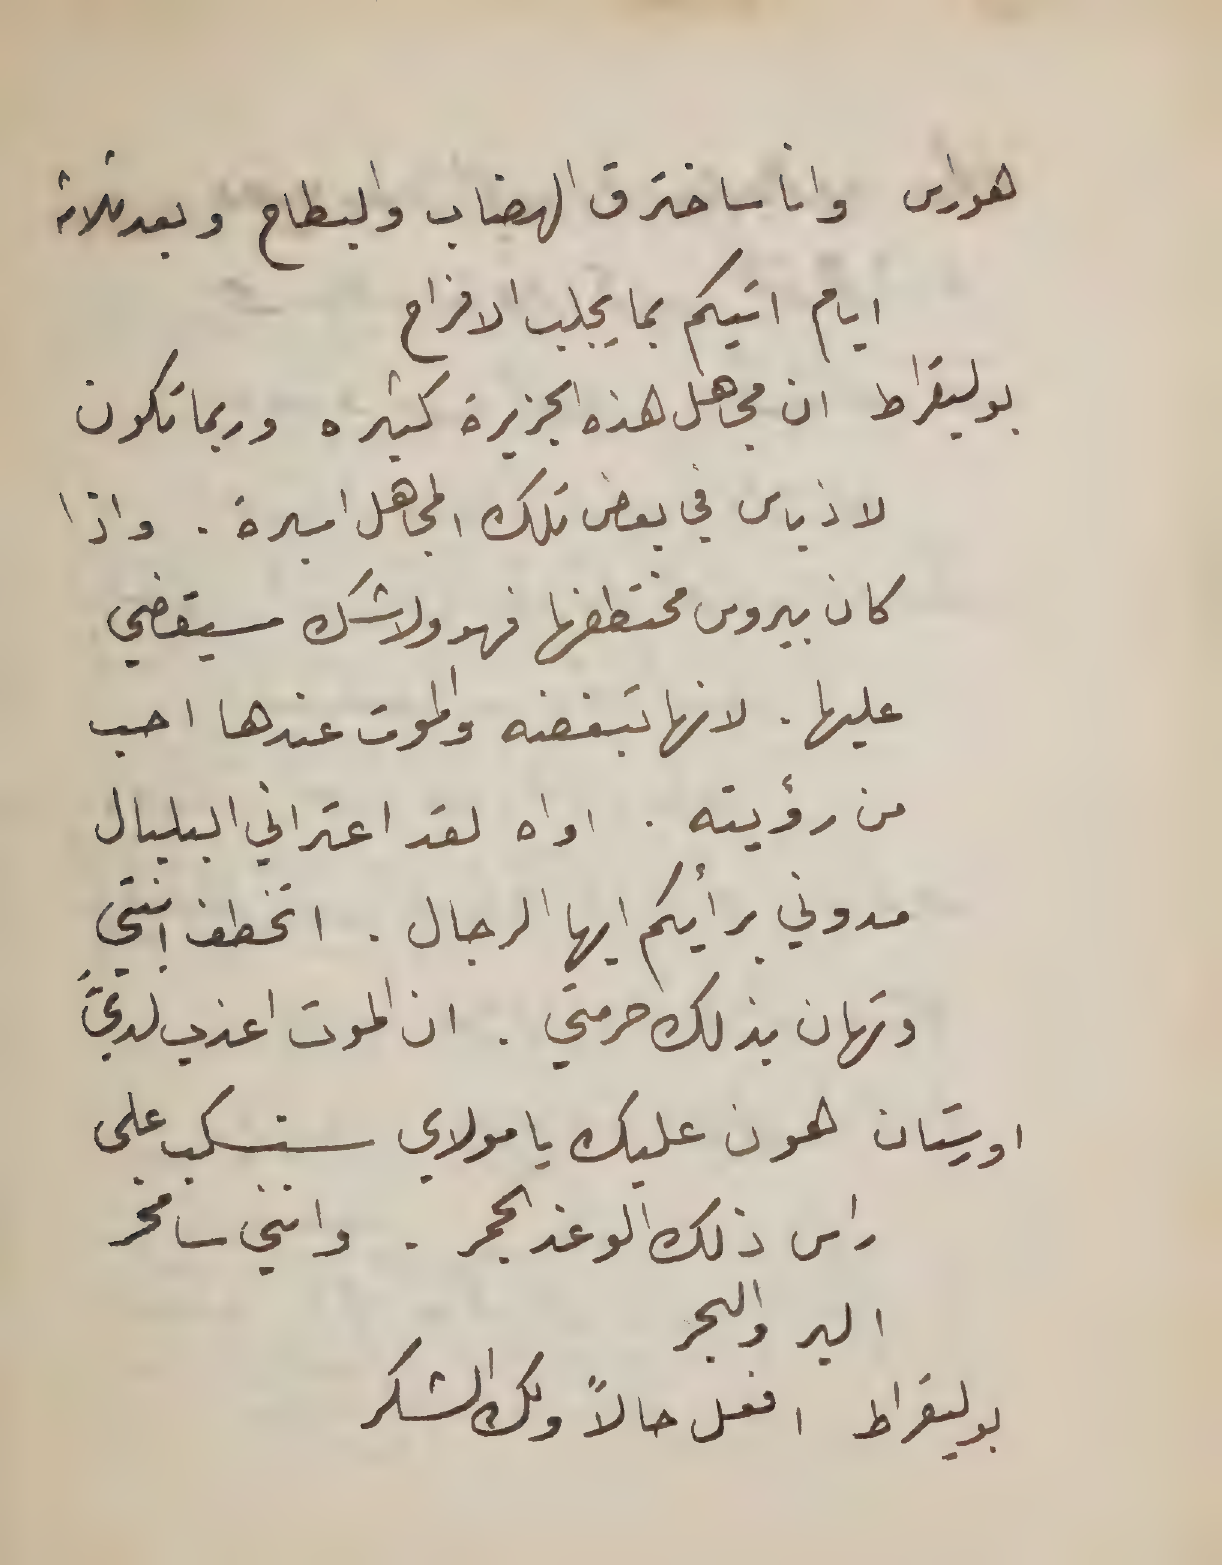 هوراس وانا ساخترق الهضاب والبطاح وبعد ثلاثة
ايام اتيكم بما يجلب الافراح
بوليقراط ان مجاهل هذه الجزيرة كثيره وربما تكون
لاذياس في بعض تلك المجاهل اسيرة . واذا
كان بيروس مختطفها فهو ولاشك سيقضي
عليها . لانها تبغضه والموت عندها احب
من رؤيته . اواه لقد اعتراني البلبال
مدوني برأيكم ايها الرجال . اتخطف ابنتي
وتهان بذلك حرمتي . ان الموت اعذب لديَّ
اورستان هون عليك يا مولاي ستسكب على
راس ذلك الوغد الحجر . وانني سامخر
البر والبحر
بوليقراط افعل حالاً ولك الشكر